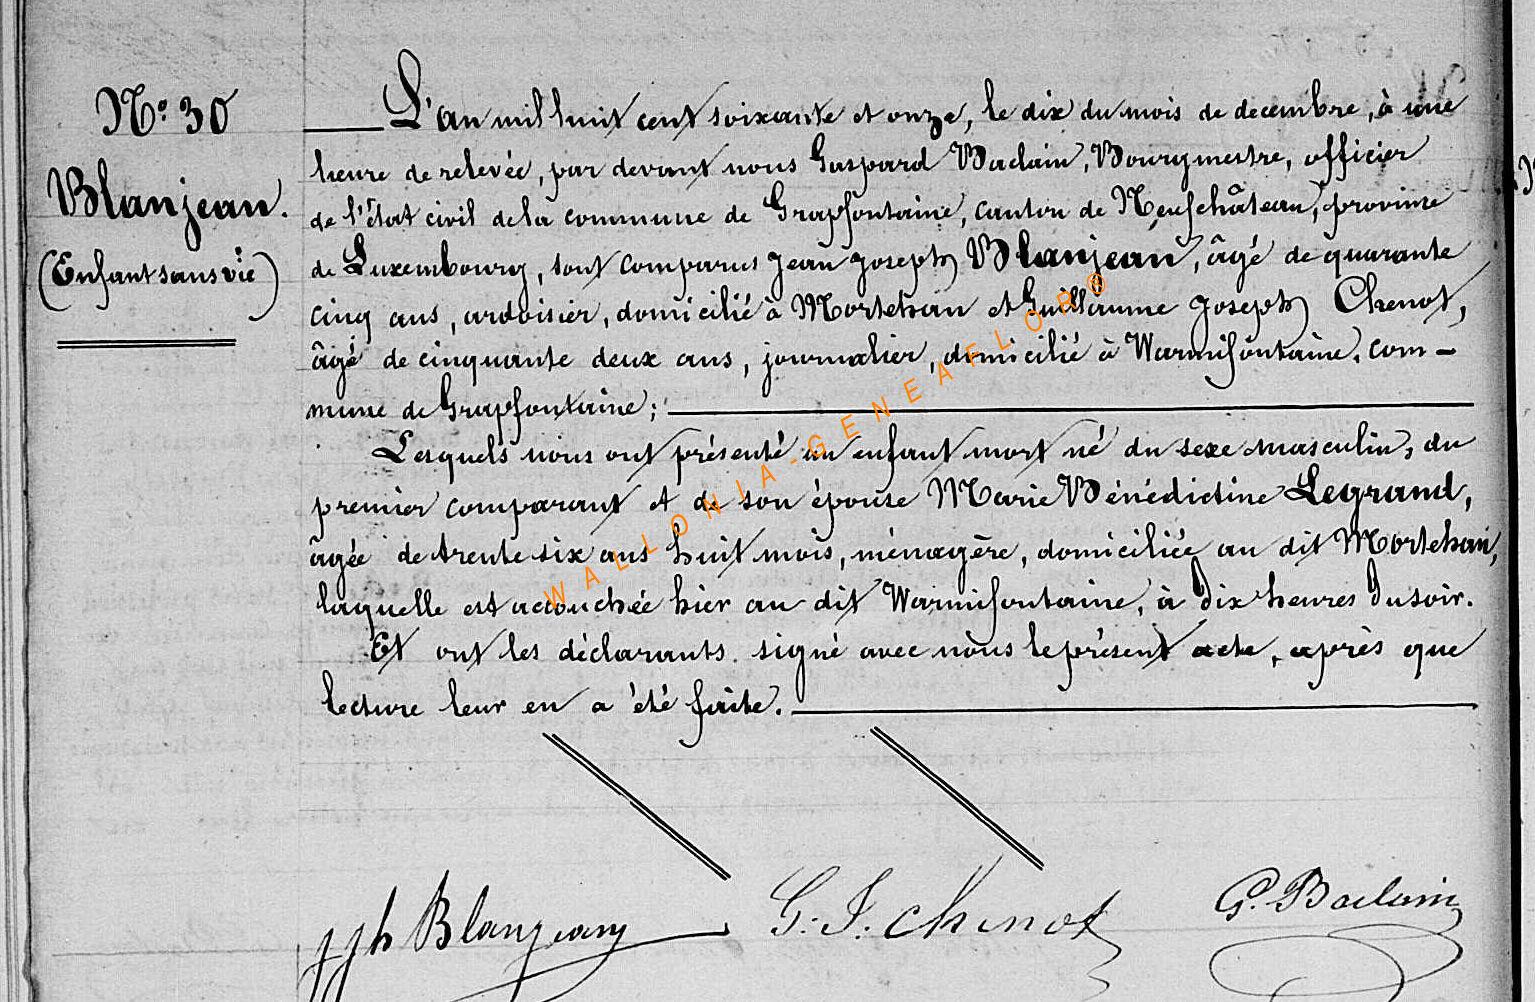 N° 30
Blanjean.
(Enfant sans vie)
L'an mil huit cent soixante et onze, le dix du mois de decembre, à une
heure de relevée, par devant nous Gaspard Baclain, Bourgmestre, officier
de l'état civil de la commune de Grapfontaine, canton de Neufchâteau, province
de Luxembourg, sont comparus Jean Joseph Blanjean, âgé de quarante
cinq ans, ardoisier, domicilié à Mortehan et Guillaume Joseph Chenot,
âgé de cinquante deux ans, journalier, domicilié à Warmifontaine, com-
mune de Grapfontaine;
Lesquels nous ont présenté un enfant mort né du sexe masculin, du
premier comparant et de son épouse Marie Bénédictine Legrand,
âgée de trente six ans huit mois, ménagère, domiciliée au dit Mortehan,
laquelle est accouchée hier au dit Warmifontaine, à dix heures du soir.
Et ont les déclarants signé avec nous le présent acte, après que
lecture leur en a été faite.
JJh Blanjean G. J. Chenot G. Baclain
WALLONIA-GENEAFLOR®